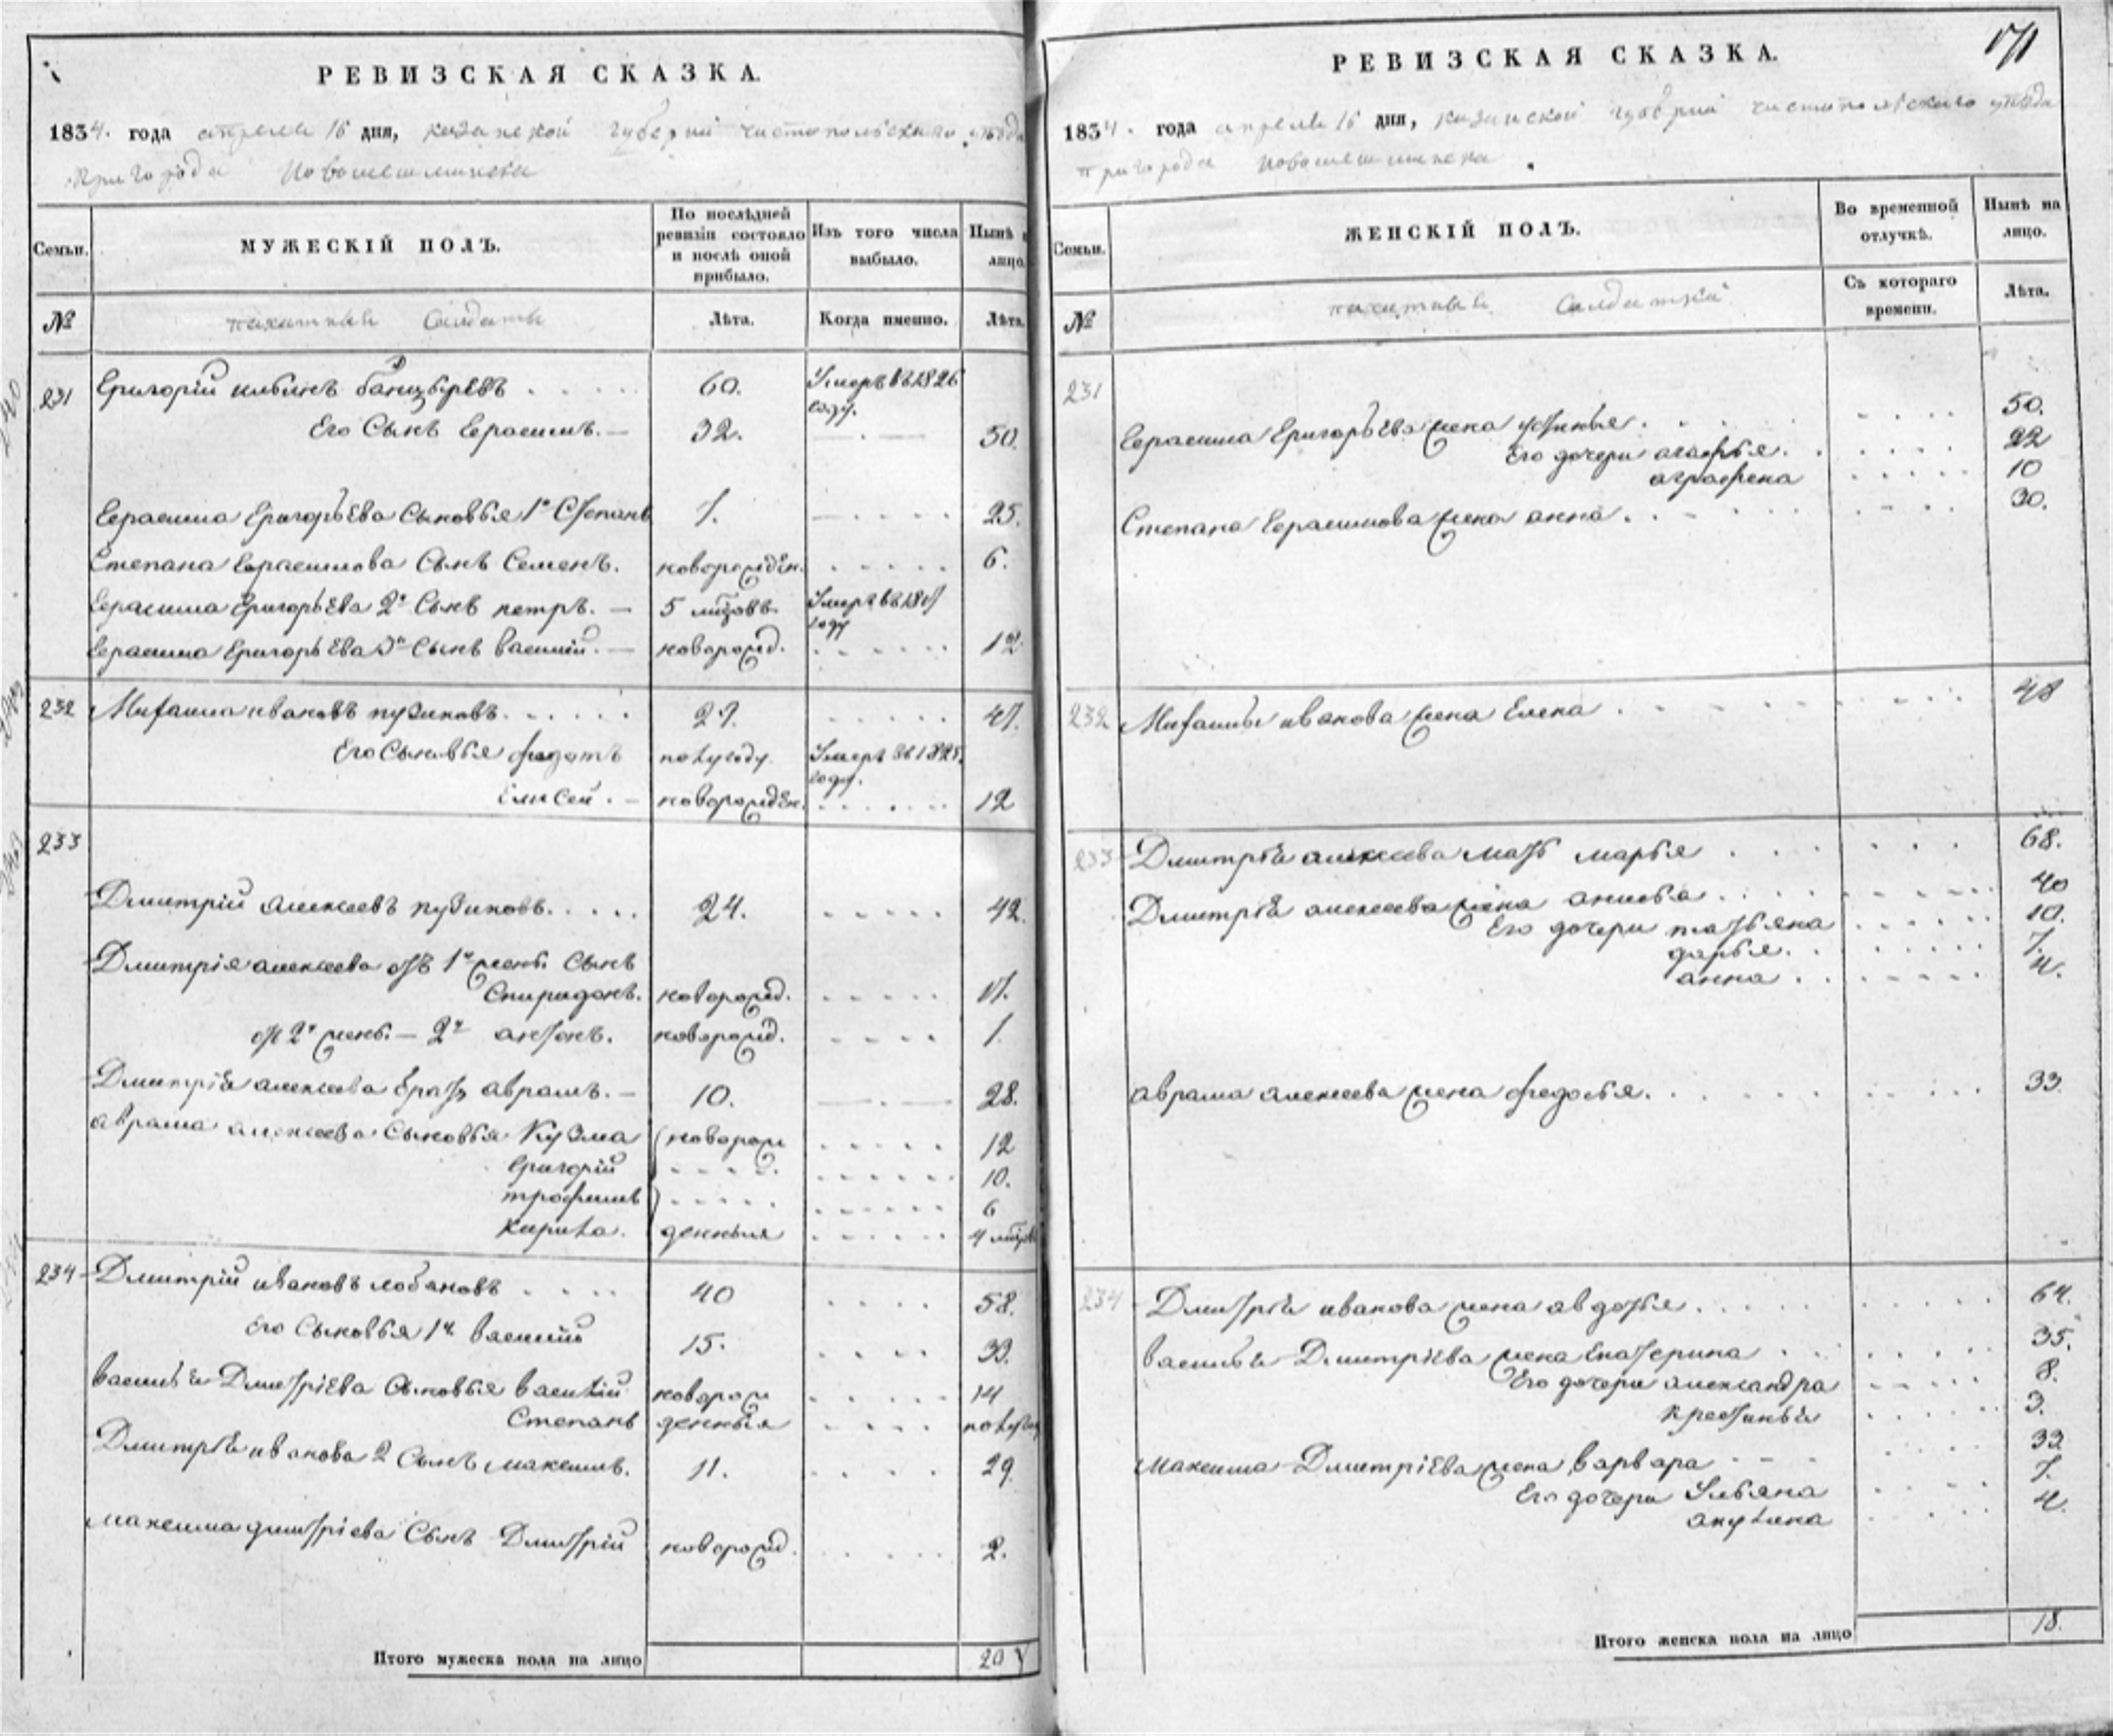 РЕВИЗСКАЯ СКАЗКА.
1834. года апреля 16 дня, казанской губернии чистопольскаго уезда
пригорода Новошешминска
Семьи.
МУЖЕСКІЙ ПОЛЪ.
По послѣдней ревизіи состояло и послѣ оной прибыло.
Изъ того числа выбыло.
Нынѣ на лицо.
№
пахатныя Солдаты
Лѣта.
Когда именно.
Лѣта.
231 Григорій ильинъ 60. Умеръ въ 1826 году.
Его Сынъ Герасимъ. 32. 50.
Герасима Григорьева Сыновья 1й Степанъ 7. 25.
Степана Герасимова Сынъ Семенъ. новорожден. 6.
Герасима Григорьева 2й Сынъ петръ. 5 Умеръ въ году
Герасима Григорьева 3й Сынъ василій. новорожд. 12
232 Михайла ивановъ пузиковъ 29. 47.
Его Сыновья федотъ полугоду Умеръ въ 1825 году.
Елисей. новорожден. 12
233
Дмитрій алексеевъ пузиковъ 24. 42.
Дмитрія алексеева отъ 1й жены Сынъ
Спиридонъ. новорожд. 17.
от 2й жены 2й антонъ. новорожд. 1.
Дмитрія алексеева братъ аврамъ. 10. 28.
аврама алексеева Сыновья Кузма новорож 12
Григорій 10.
трофимъ 6
кирила. денныя 4
234 Дмитрій ивановъ лобановъ 40 58.
Его Сыновья 1й василий 15. 33.
василья Дмитріева Сыновья василій новорож 14
Степанъ денныя
Дмитрія иванова 2 Сынъ максимъ. 11. 29.
максима дмитріева Сынъ Дмитрій новорожд. 2.
Итого мужеска пола на лицо 20
171
РЕВИЗСКАЯ СКАЗКА.
1834. года апреля 16 дня, казанской губернии чистопольскаго уезда
пригорода новошешминска
Семьи.
ЖЕНСКІЙ ПОЛЪ.
Во временной отлучкѣ.
Нынѣ на лицо.
№
пахатныя Солдатки
Съ котораго времени.
Лѣта.
231
Герасима Григорьева жена устинья. 50.
Его дочери агафья. 22
аграфена 10
Степана Герасимова жена анна. 30.
232 Михайлы иванова жена Елена 48
233 Дмитрія алексеева мать марья 68.
Дмитрія алексеева жена анисья 40
Его дочери татьяна 10.
дарья. 7.
анна 4.
аврама алексеева жена федосья. 33.
234 Дмитрія иванова жена авдотья 64.
василья Дмитріева жена Екатерина 35.
Его дочери александра 8.
крестинья 3.
Максима Дмитріева жена варвара 32
Его дочери Ульяна 7.
акулина 4.
Итого женска пола на лицо 18.